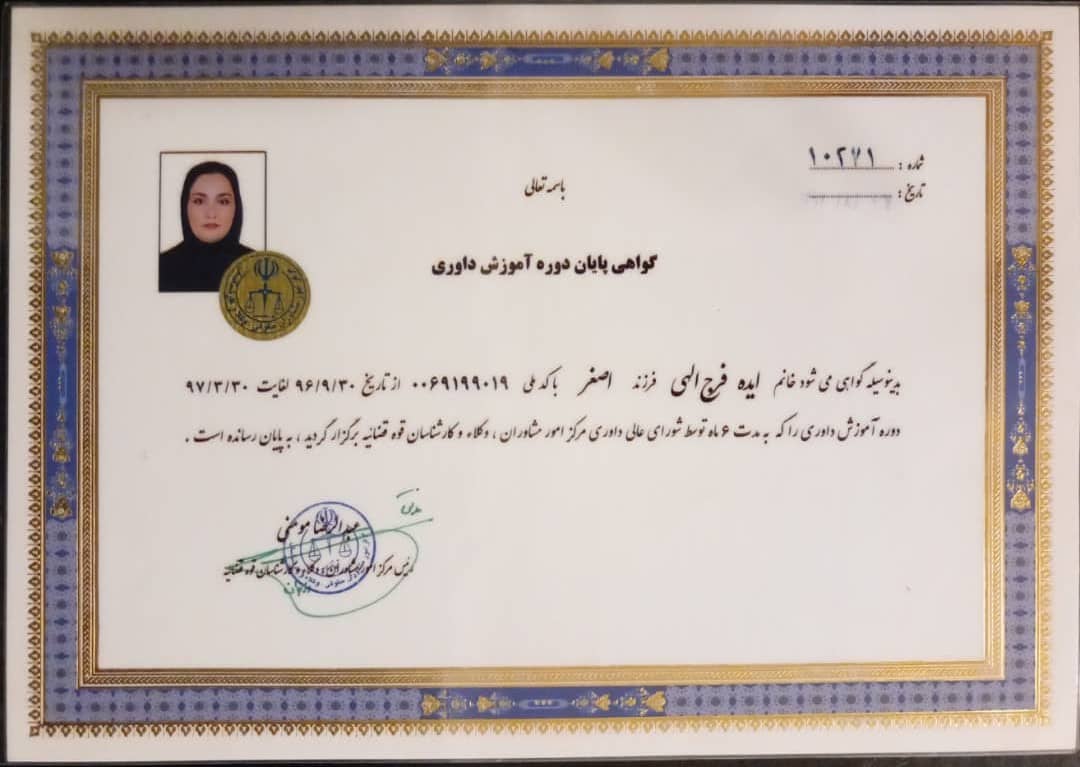 باسمه تعالی
شماره : ۱۰۲۷۱
تاریخ :
گواهی پایان دوره آموزش داوری
بدینوسیله گواهی می شود خانم ایده فرج الهی فرزند اصغر با کد ملی ۰۰۶۹۱۹۹۰۱۹ از تاریخ ۹۶/۹/۳۰ لغایت ۹۷/۳/۳۰
دوره آموزش داوری را که به مدت ۶ ماه توسط شورای عالی داوری مرکز امور مشاوران ، وکلاء و کارشناسان قوه قضائیه برگزار گردید ، به پایان رسانده است .
عبدالرضا مومنی
رئیس مرکز امور مشاوران وکلاء و کارشناسان قوه قضائیه